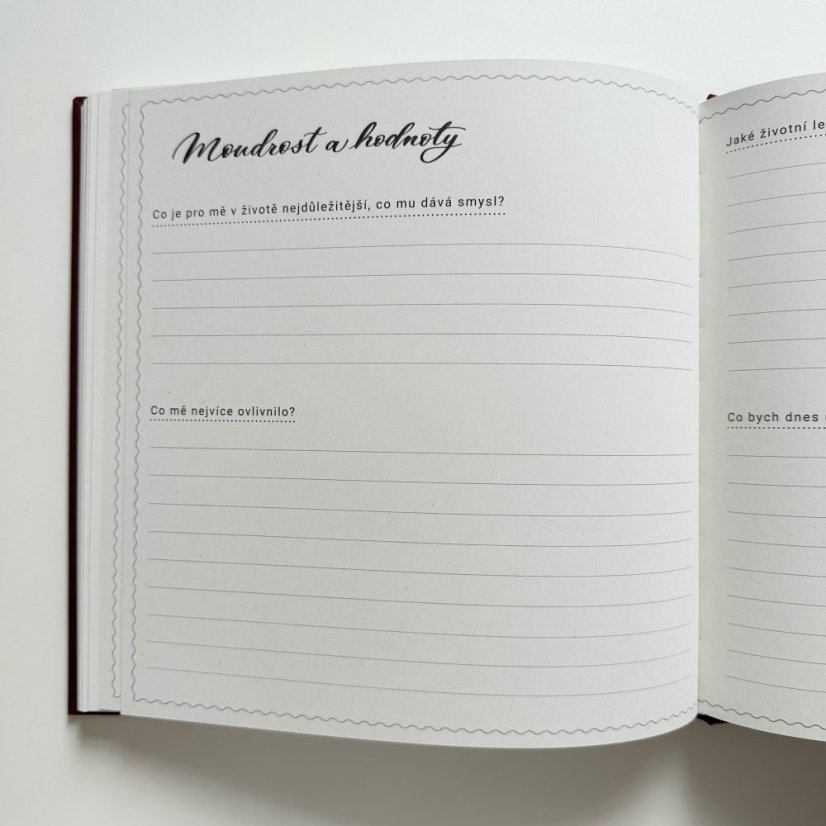 Moudrost a hodnoty
Co je pro mě v životě nejdůležitější, co mu dává smysl?
Co mě nejvíce ovlivnilo?
Jaké životní
Co bych dnes